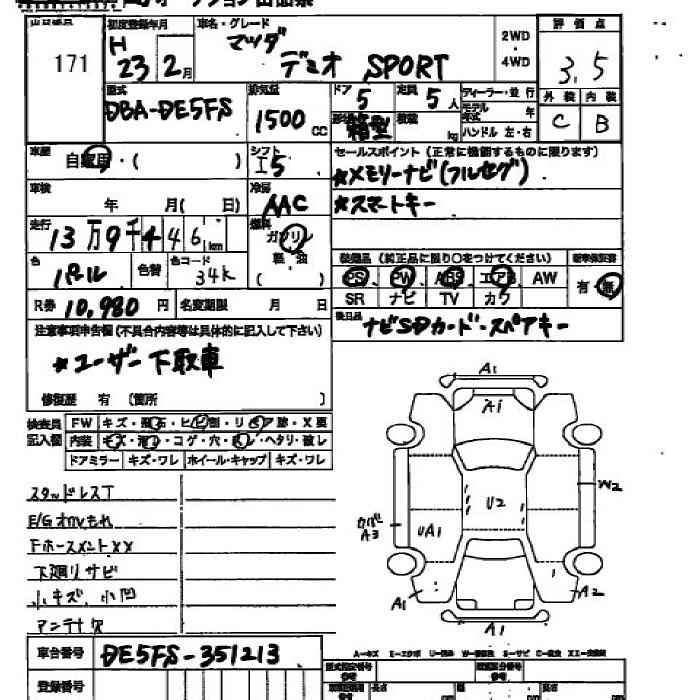 171
初度登録年月
H 23 2月
車名・グレード
マツダ
デミオ SPORT
2WD
4WD
評価点
3.5
型式
DBA-DE5FS
排気量
1500 CC
ドア
5
定員
5人
ディーラー・並行
モデル
年
ハンドル 左・右
kg
箱型
外装
内装
C
B
車歴
自家用・( )
シフト
I5
セールスポイント(正常に機能するものに限ります)
★メモリーナビ(フルセグ)
★スマートキー
車検
年 月( 日)
冷房
AAC
走行
13万9千446km
燃料
ガソリン
軽・油
( )
色
パール
色替
色コード
34K
装備品(純正品に限り○をつけてください)
PS PW ABS エアB AW
SR ナビ TV カワ
新車保証書
有・無
R券 10,980円
名変期限 月 日
後日品
ナビSDカード・スペアキー
注意事項申告欄(不具合内容等は具体的に記入して下さい)
★ユーザー下取車
修復歴 有(箇所 )
検査員
記入欄
FW キズ・飛石・ヒビ割・リペア跡・X要
内装 キズ・汚れ・コゲ・穴・・ヘタリ・破レ
ドアミラー キズ・ワレ ホイール・キャップ キズ・ワレ
スタッドレスT
E/Gオイルもれ
Fホースメント XX
下廻りサビ
小キズ、小凹
アンテナ欠
A1
A1
U2
W2
カバー
A3
UA1
A1
A2
A1
車台番号
DE5FS-351213
登録番号
A…キズ E…エクボ U…凹み W…補修跡 S…サビ C…腐食 X…要交換 XX…交換済
型式指定番号
類別区分番号
長さ
幅
高さ